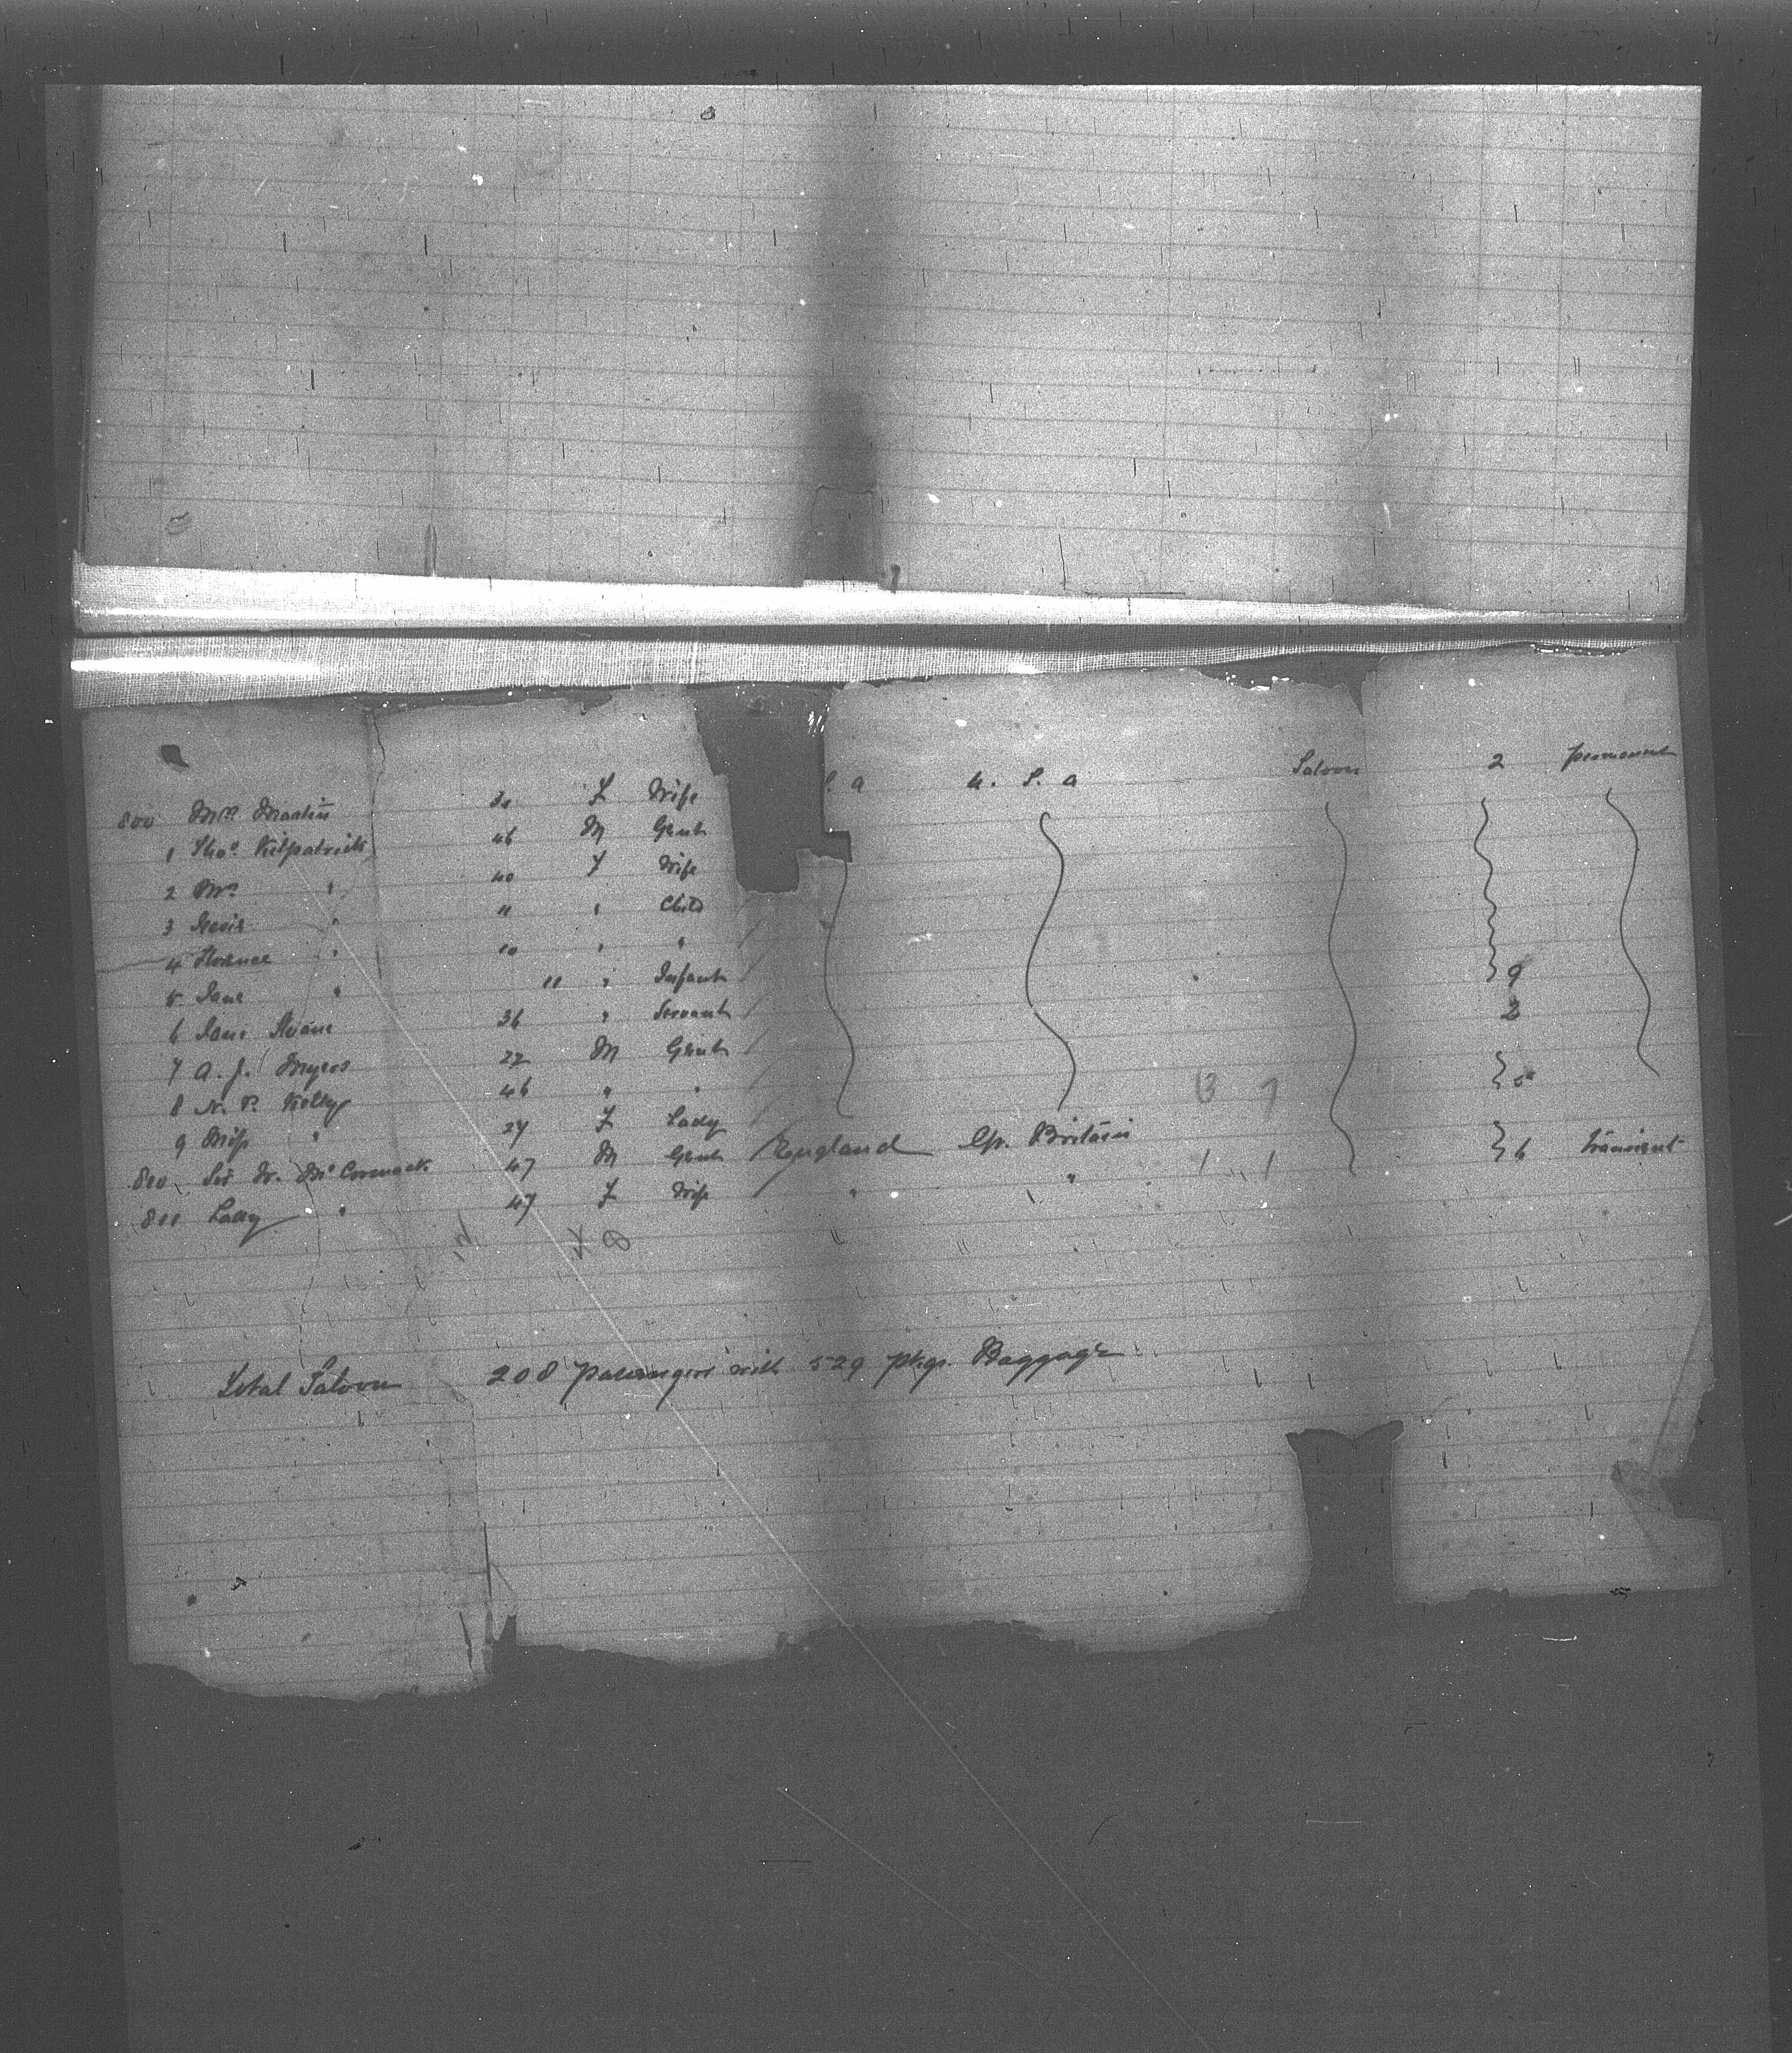 800 Mrs Martin 30 F Wife S. A U. S. A Saloon 2 permanent
1 Thos. Kilpatrick 46 M Gent
2 Mrs " 40 F Wife
3 " 11 " Child
4 " 10 " "
5 Jane " 11 " Infant 9
6 Jane 36 " Servant 2
7 A. J. Myers 22 M Gent
8 N. P. Kelly 46 " " 5
9 Miss " 24 F Lady
810 Sir W. McCormack 47 M Gent England Gr. Britain 6 transient
811 Lady " 47 F Wife " "
Total Saloon 208 passengers with 529 pkgs. Baggage